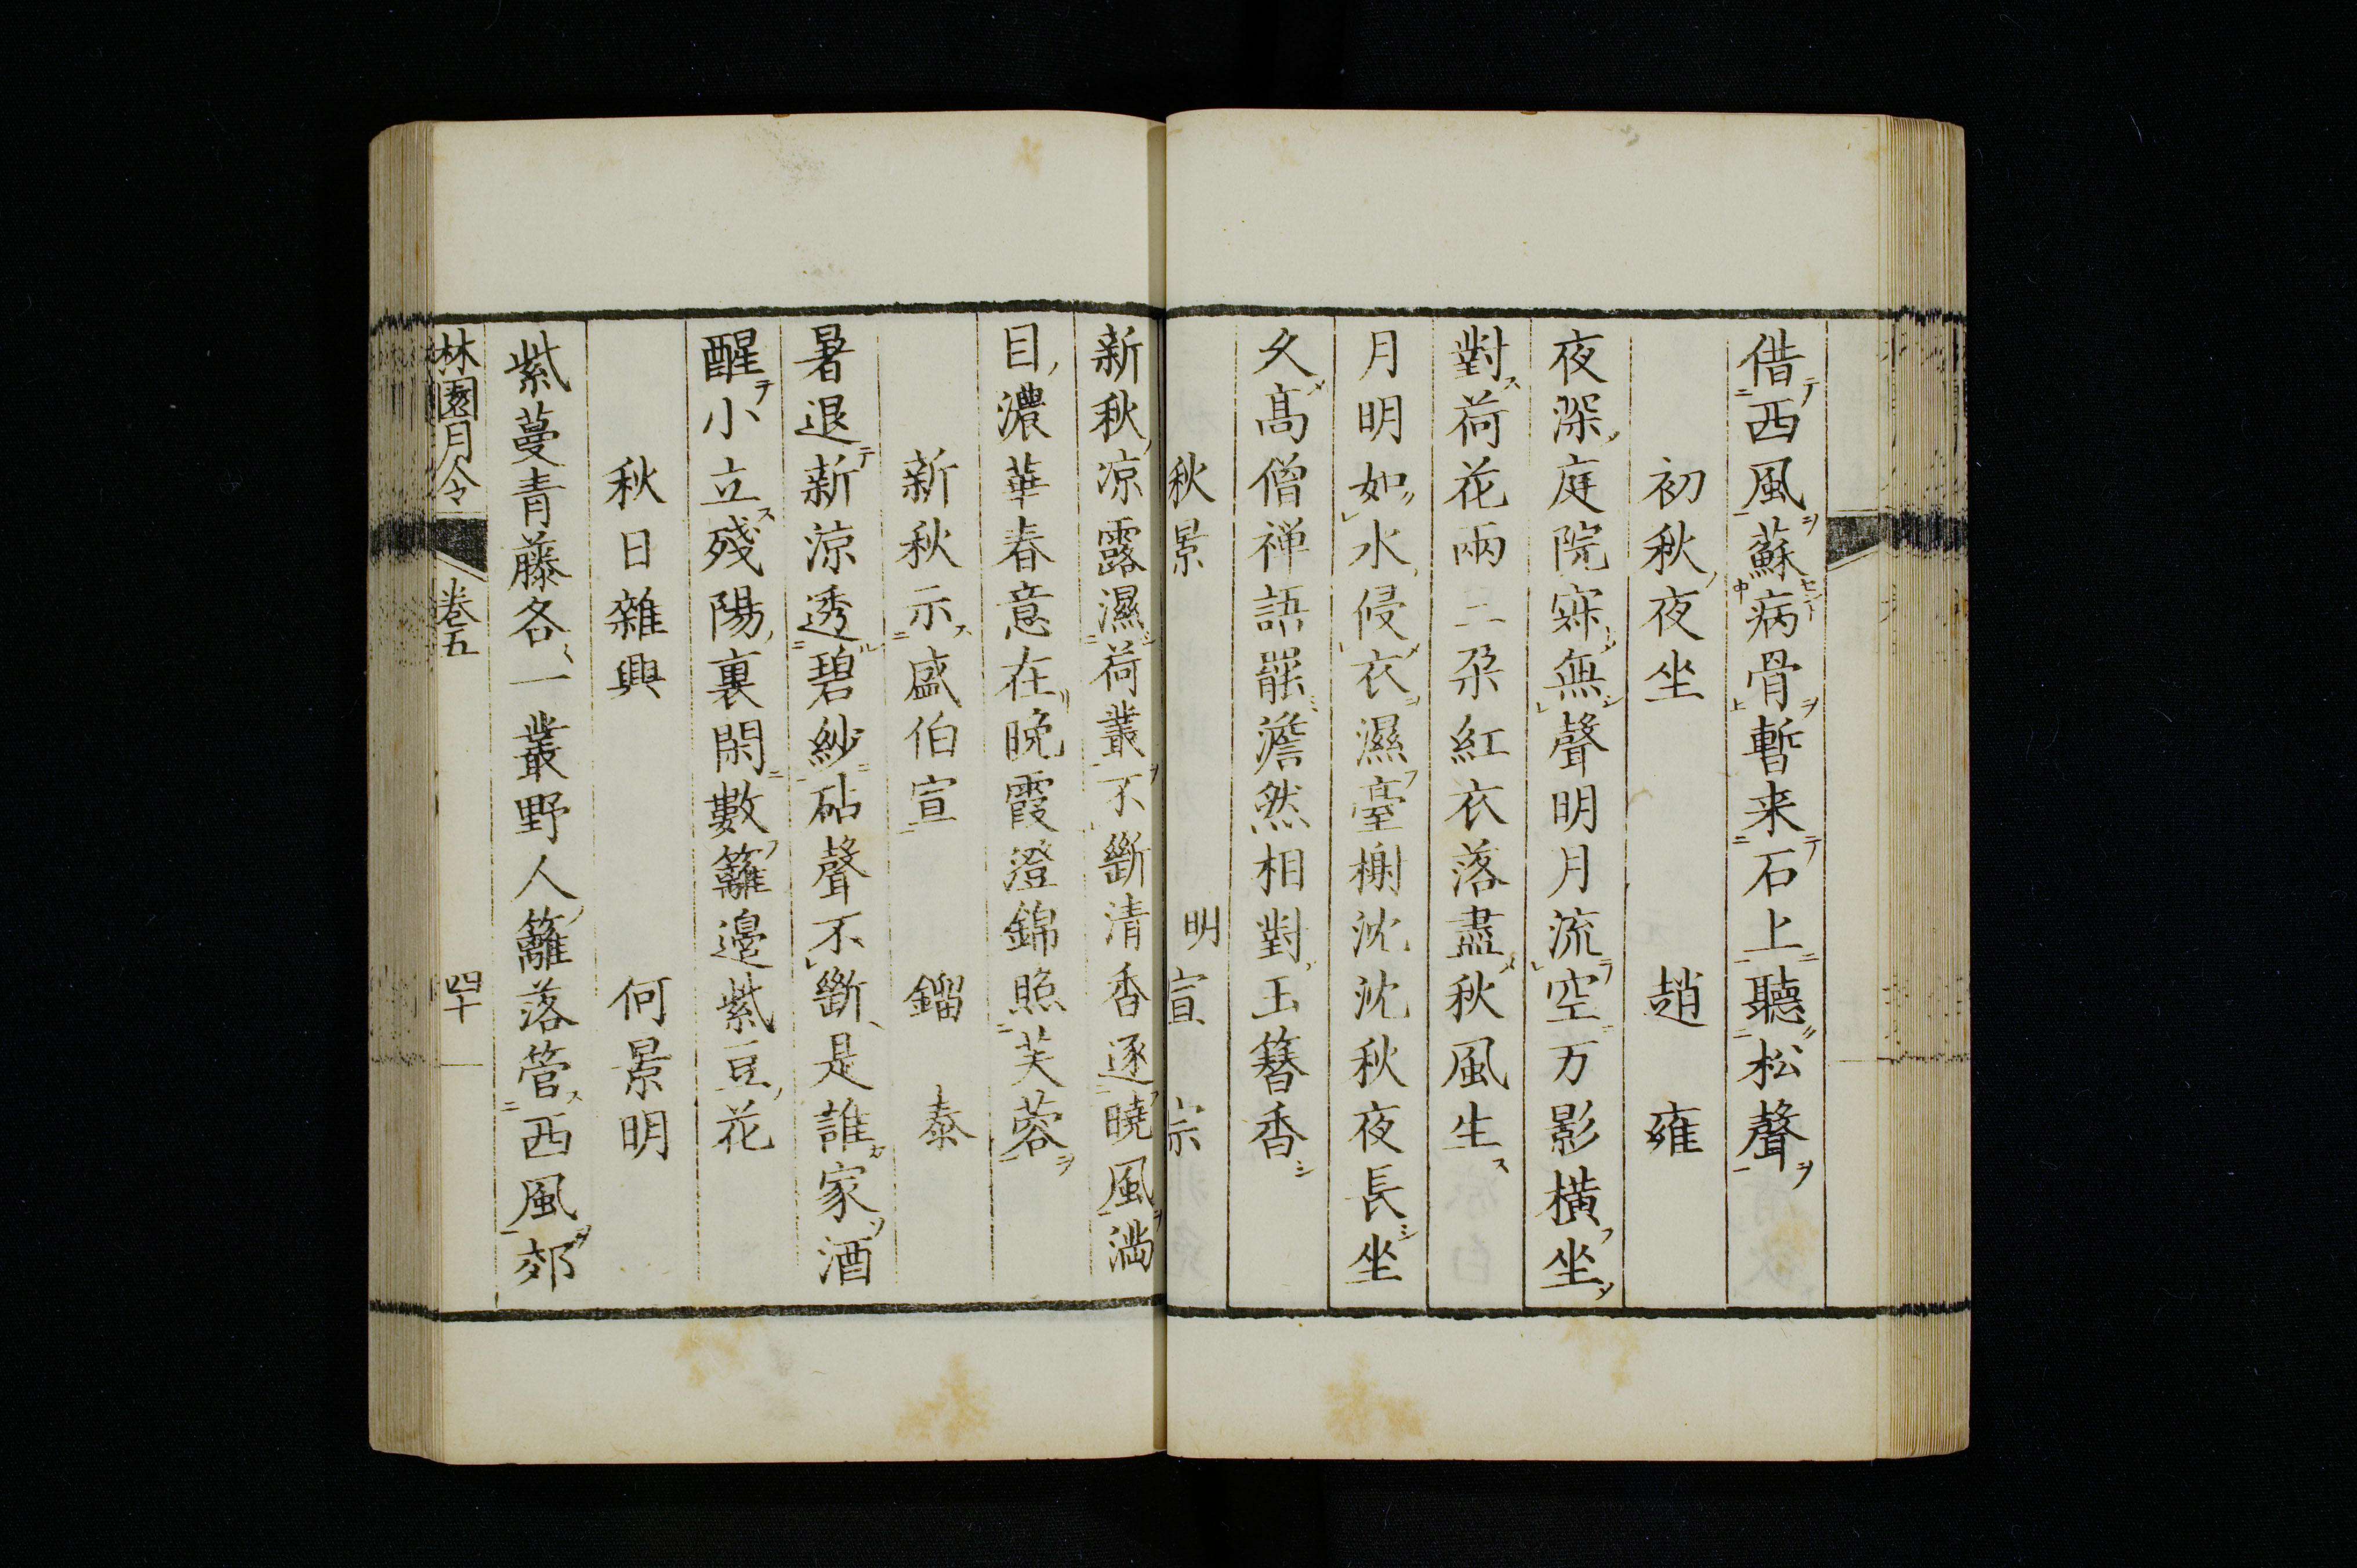 借西風蘇病骨暫来石上聽松聲
初秋夜坐　趙雍
夜深庭院寂無聲明月流空万影橫坐
對荷花兩三朶紅衣落盡秋風生
月明如水侵衣濕臺榭沈沈秋夜長坐
久髙僧禅語罷澹然相對玉簪香
秋景　明宣宗
新秋凉露濕荷叢不斷清香逐曉風満
目濃華春意在晩霞澄錦照芙蓉
新秋示盛伯宣　鎦泰
暑退新涼透碧紗砧聲不斷是誰家酒
醒小立殘陽裏閑數籬邊紫豆花
秋日雜興　何景明
紫蔓青藤各一叢野人籬落管西風郊
林園月令　卷五　四十